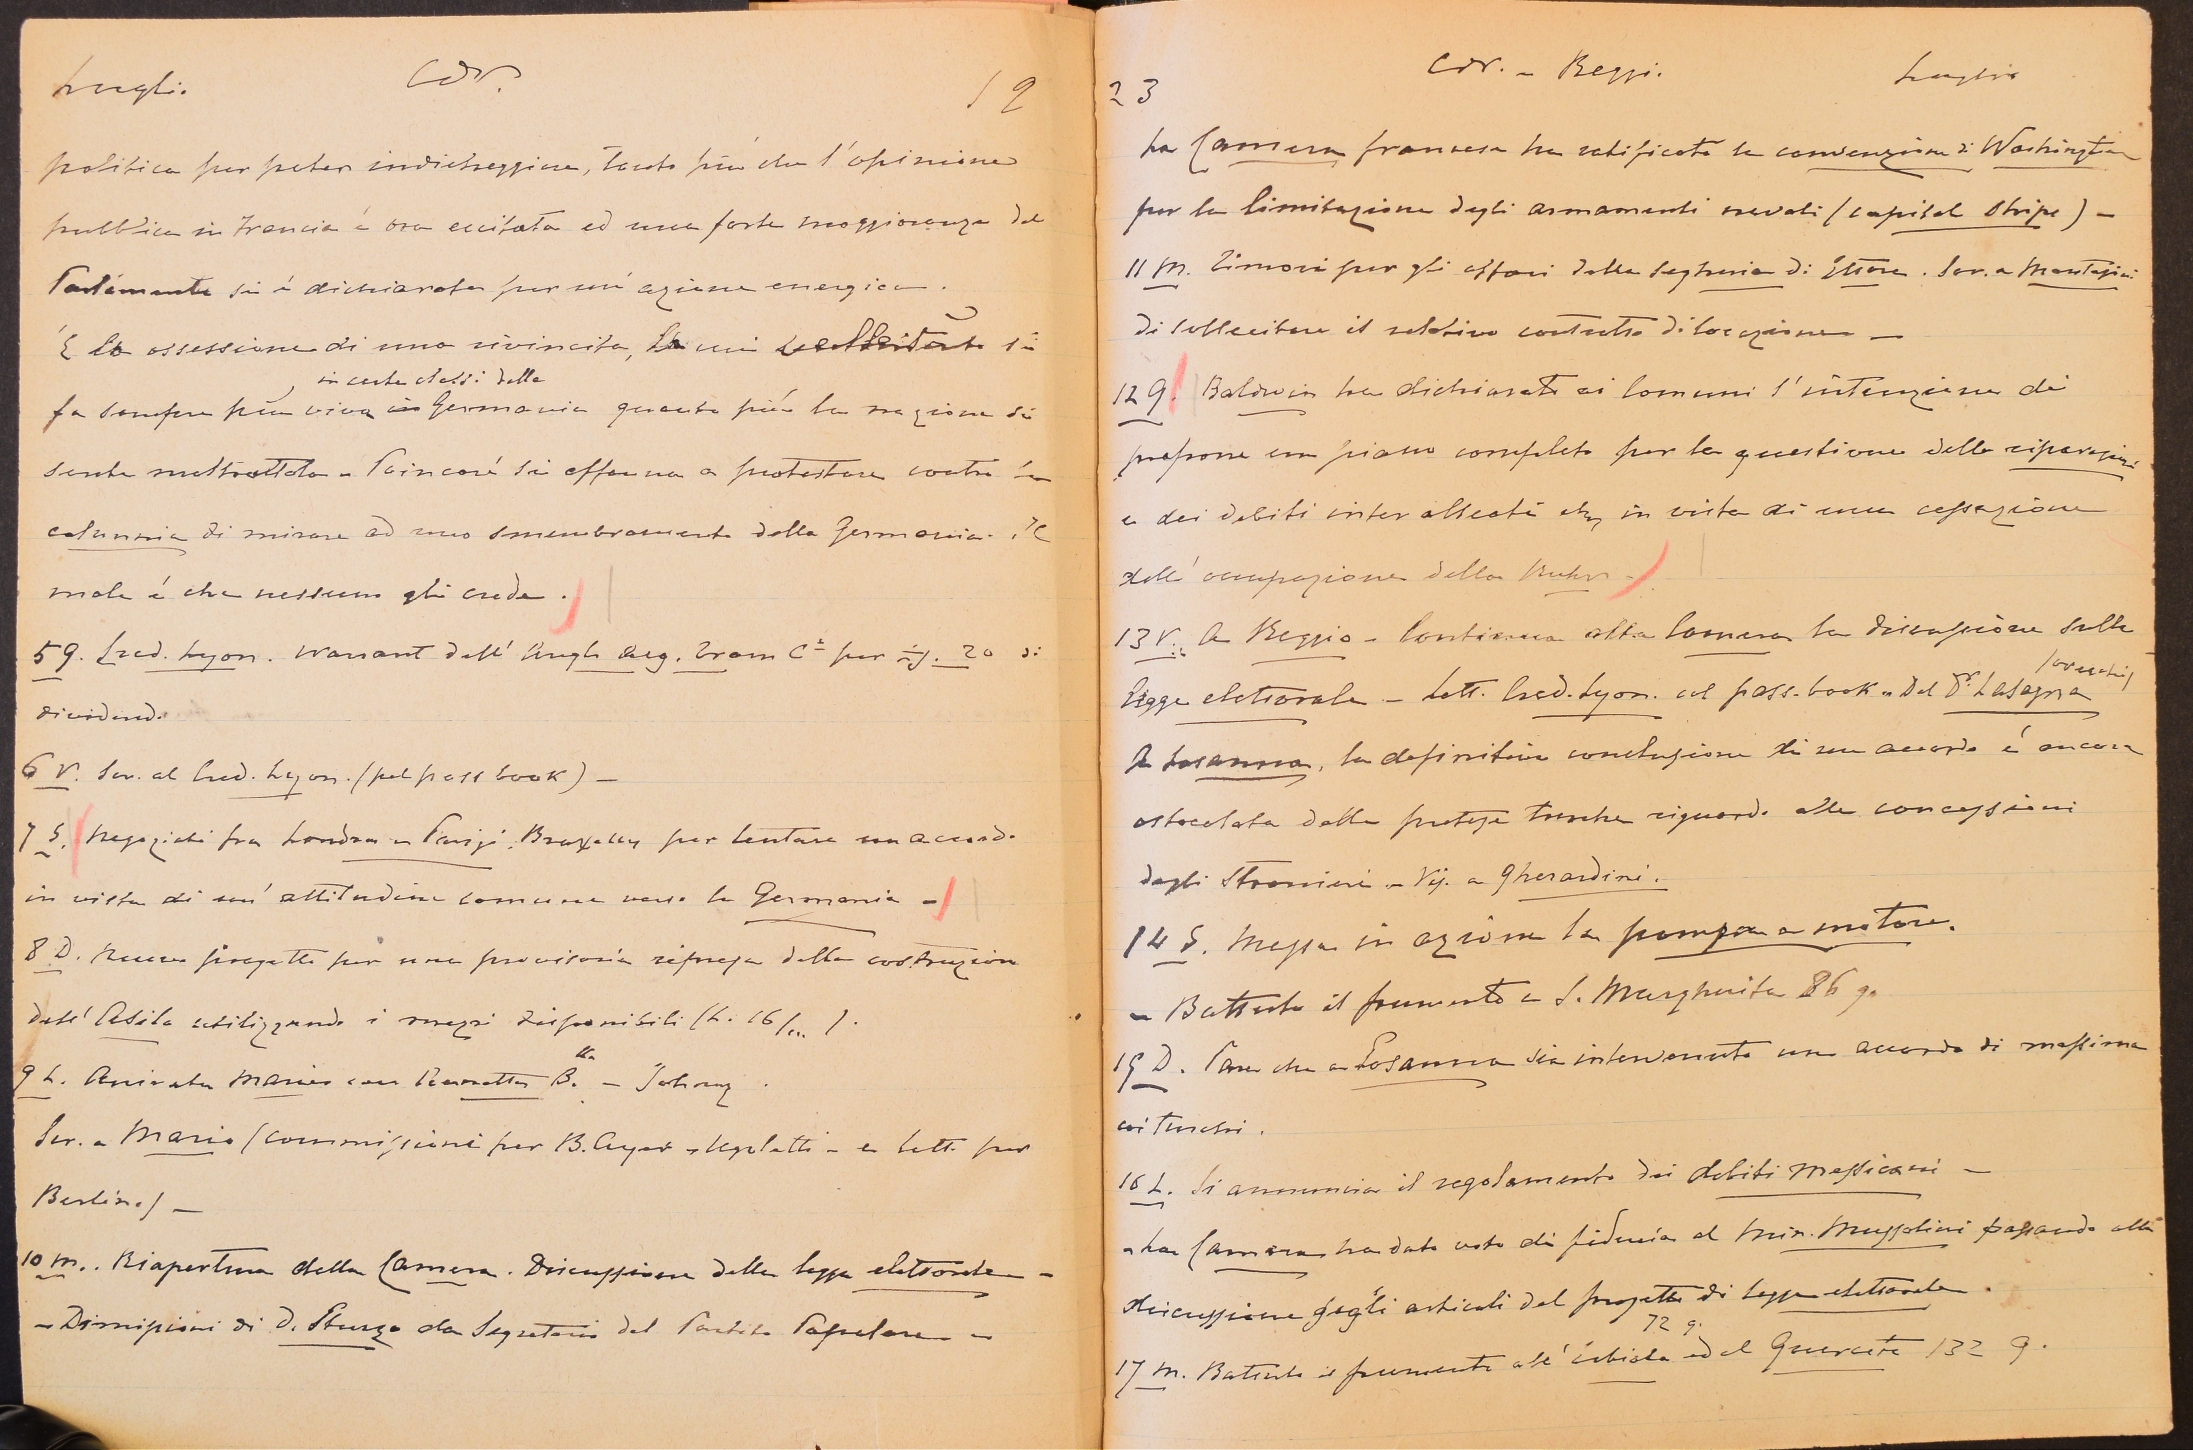 Luglio. Cav. 19
politica per poter indietreggiare, tanto più che l'opinione
pubblica in Francia é ora eccitata ed una forte maggioranza del
Parlamento si é dichiarata per un' azione energica.
É la ossessione di una rivincita, si
in certe classi della
fa sempre più viva Germania quanto più la nazione si
sente maltrattata - Poincaré si affanna a protestare contro la
calunnia di mirare ad uno smembramento della Germania. Il
male é che nessuno gli crede.
5 G. Cred. Lyon. Warrant dell' Angl. Arg. Tram Cº per 20 di
dividendo
6 V. Scr. al Cred. Lyon. (pel pass book) -
7 S. Negoziati fra Londra - Parigi. Bruxelles per tentare un accordo
in vista di un' attitudine comune verso la Germania -
8 D. Nuovo progetto per una provvisoria ripresa della costruzione
dell' Asilo utilizzando i mezzi disponibili (L. 16/m).
9 L. Arrivata Maria con B. -
Scr. a Mario (commissioni per B. Ayres - - e lett. per
Berlino) -
10 M. Riapertura della Camera. Discussione della legge elettorale -
- Dimissioni di D. Sturzo da Segretario del Partito Popolare -
23 Cav. - Reggi. Luglio
La Camera francese ha ratificato la convenzione di Washington
per la limitazione degli armamenti navali (capital ships) -
11 M. Timori per gli affari della Segheria di Ettore. Scr. a
di sollecitare il relativo contratto di locazione -
12 G. Baldwin ha dichiarato ai Comuni l'intenzione di
proporre un piano completo per la questione delle riparazioni
e dei debiti interalleati etc, in vista di una cessazione
dell' occupazione della Ruhr -
13 V. A Reggio - Continua alla Camera la discussione sulla
legge elettorale - Lett. Cred. Lyon. col pass-book - Dal Dr. Lasagna
A Losanna, la definitiva conclusione di un accordo é ancora
ostacolata dalle pretese turche riguardo alle concessioni
degli stranieri - Vis. a Gherardini.
14 S. Messa in azione la pompa a motore.
- Battuto il frumento a S. Margherita 86 q.
15 D. Pare che a Losanna sia intervenuto un accordo di massima
coi turchi.
16 L. Si annuncia il regolamento dei debiti messicani -
- La Camera ha dato voto di fiducia al Min. Mussolini passando alla
discussione degli articoli del progetto di legge elettorale.
72 q.
17 M. Battuto il frumento all' ed al Querceto 132 q.